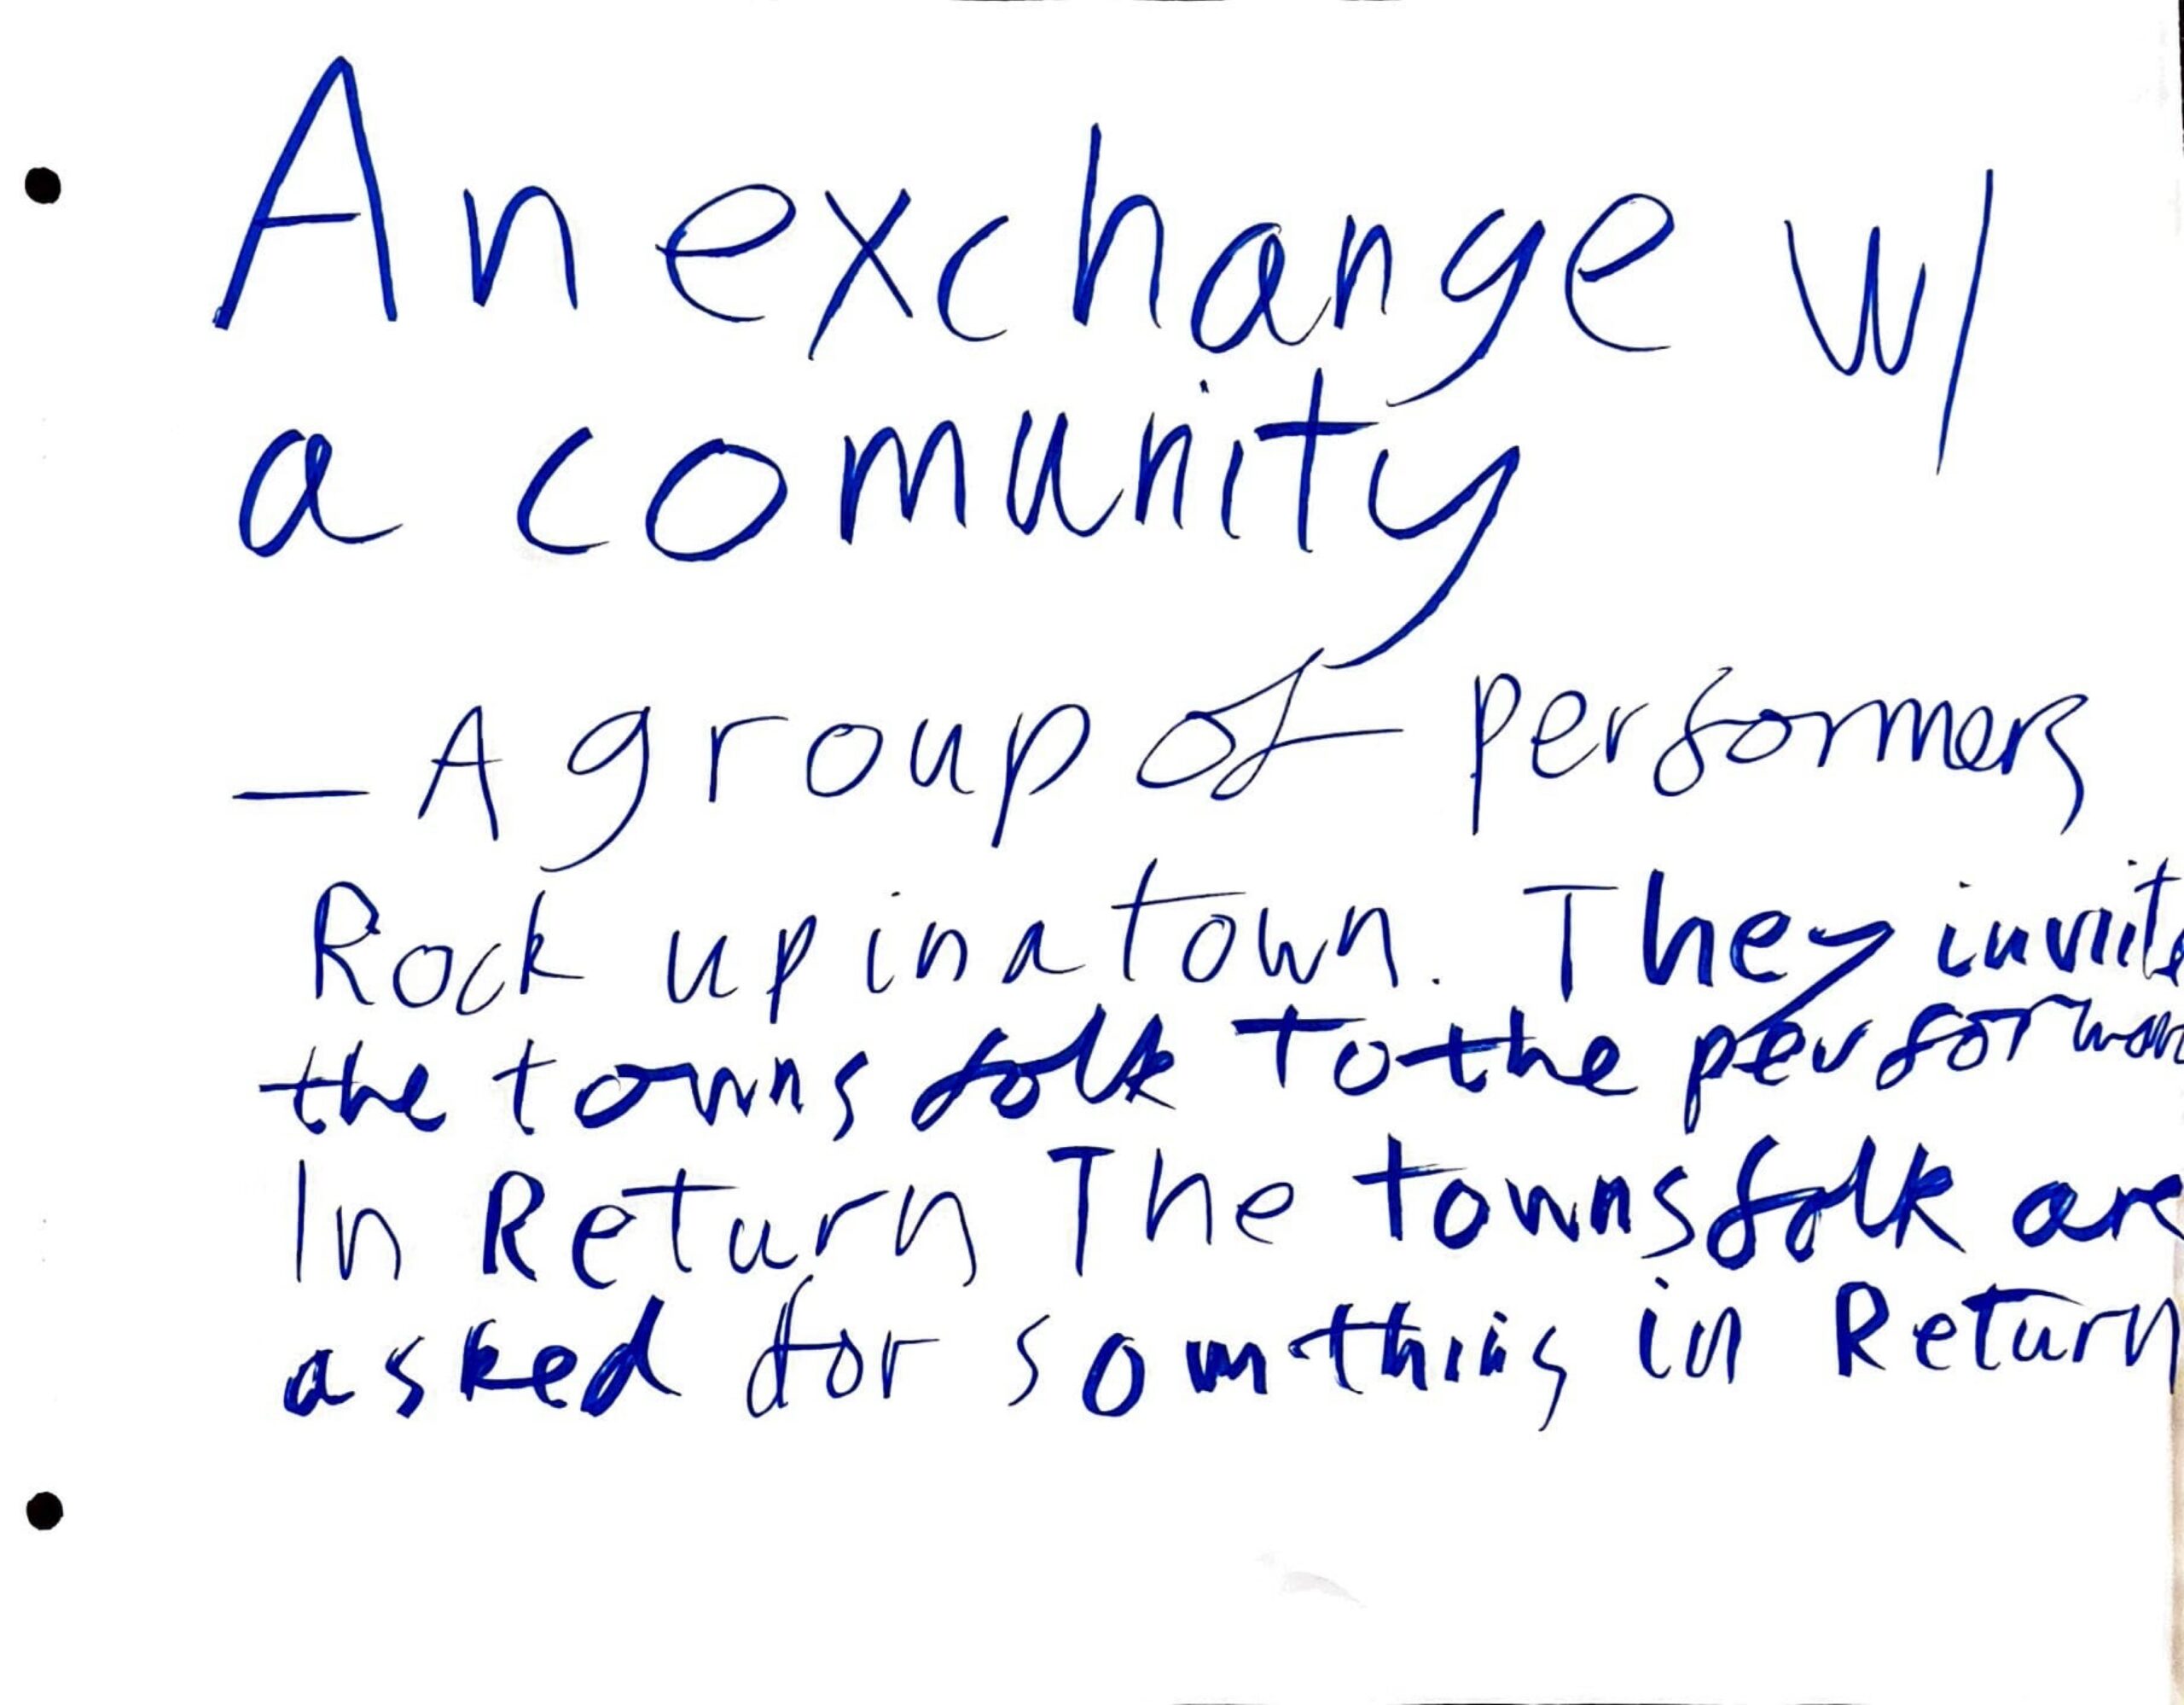 An exchange w/
a comunity
— A group of performers
Rock up in a town. They invite
the towns folk to the performan
In Return The townsfolk are
asked for somthing in Return